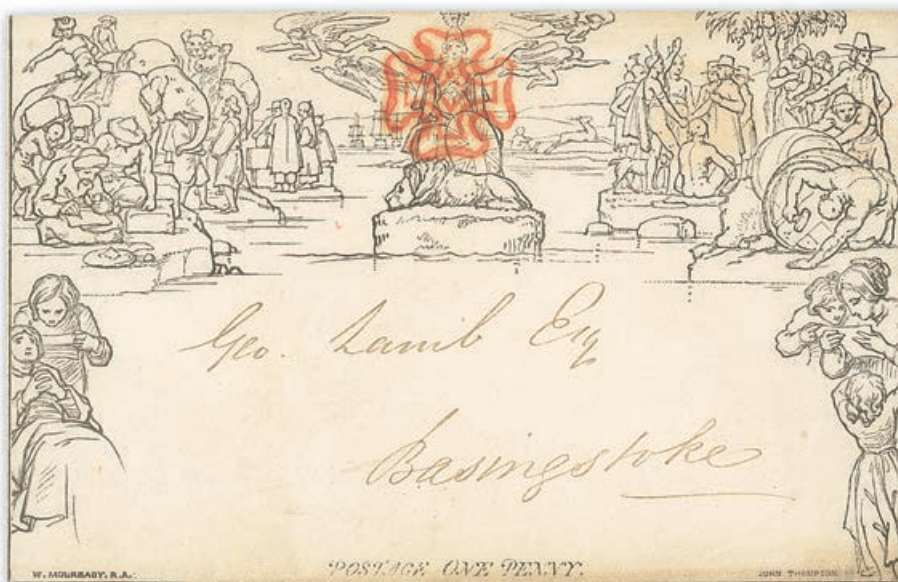 Geo. Lamb Esq
Basingstoke
W. MULREADY, R.A.
POSTAGE ONE PENNY.
JOHN THOMPSON